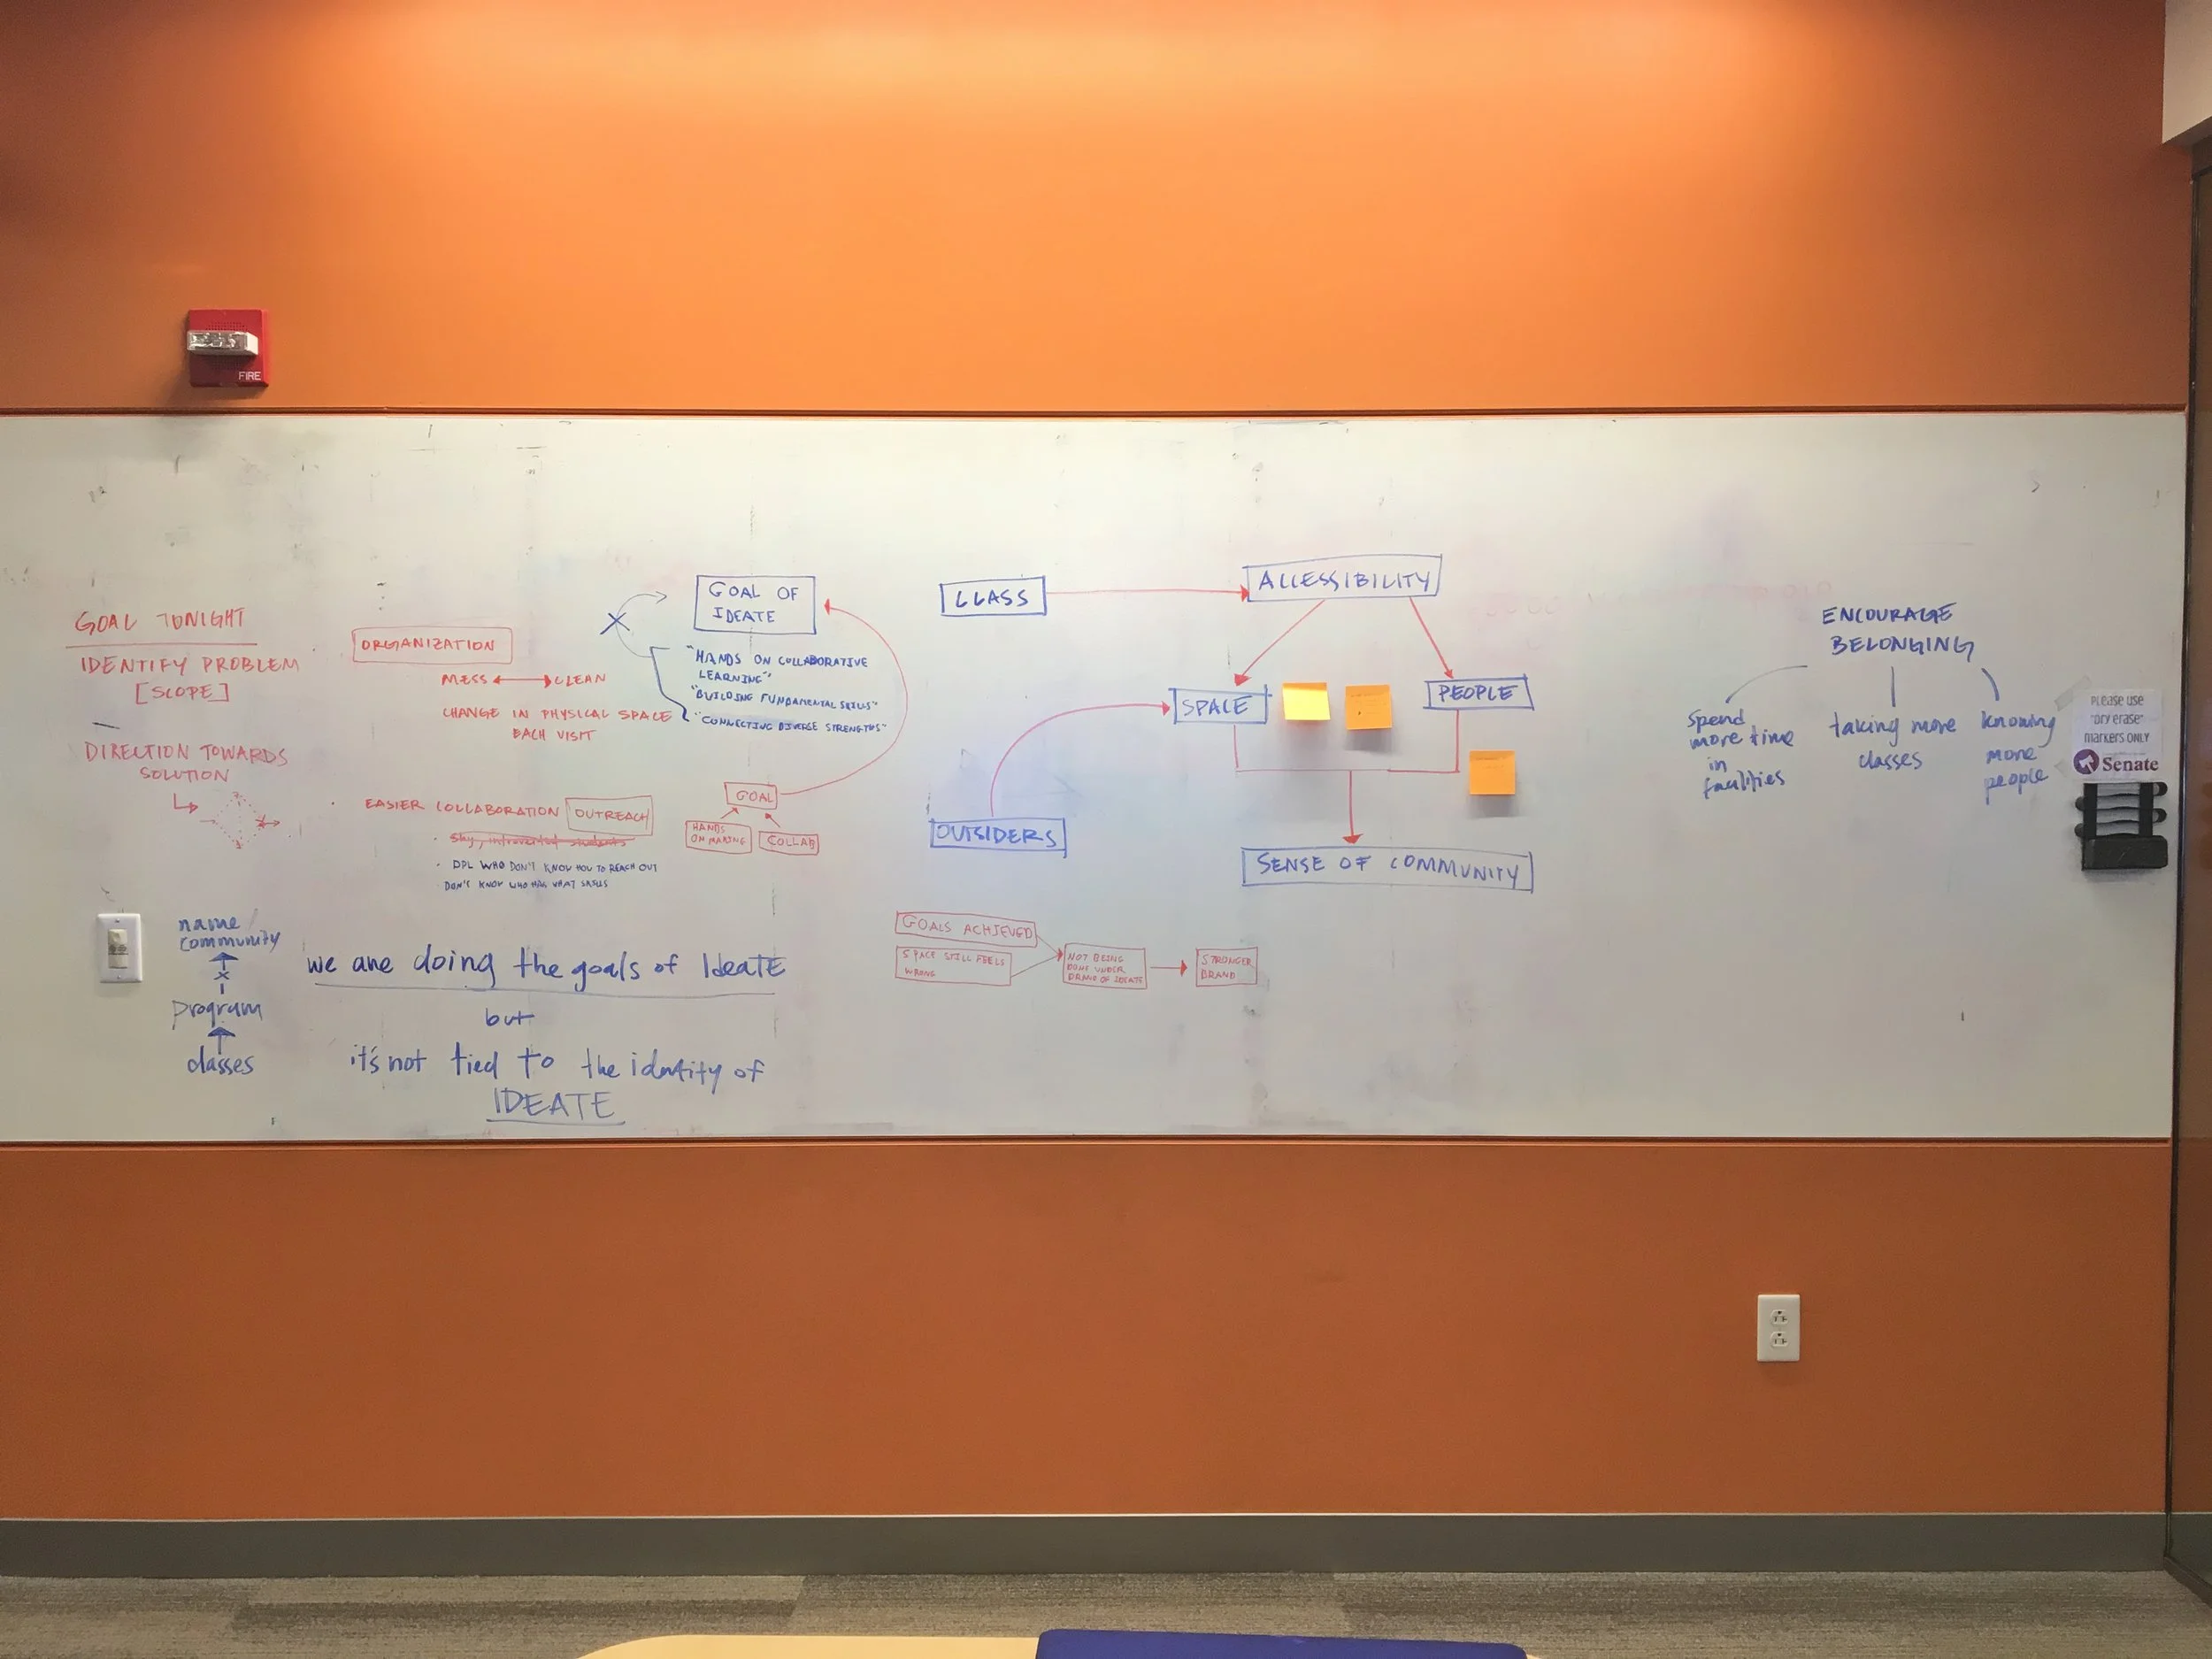 FIRE
GOAL TONIGHT
IDENTIFY PROBLEM
[SCOPE]
DIRECTION TOWARDS
SOLUTION
ORGANIZATION
MESS CLEAN
CHANGE IN PHYSICAL SPACE
EACH VISIT
EASIER COLLABORATION OUTREACH
· Shy, introverted students
· DPL WHO DON'T KNOW HOW TO REACH OUT
· DON'T KNOW WHO HAS WHAT SKILLS
GOAL OF
IDEATE
"HANDS ON COLLABORATIVE
LEARNING"
"BUILDING FUNDAMENTAL SKILLS"
"CONNECTING DIVERSE STRENGTHS"
GOAL
HANDS
ON MAKING
COLLAB
name/
community
program
classes
we are doing the goals of IdeaTE
but
it's not tied to the identity of
IDEATE
CLASS
ACCESSIBILITY
SPACE
PEOPLE
OUTSIDERS
SENSE OF COMMUNITY
GOALS ACHIEVED
SPACE STILL FEELS
WRONG
NOT BEING
DONE UNDER
OF IDEATE
STRONGER
BRAND
ENCOURAGE
BELONGING
Spend
more time
in
facilities
taking more
classes
knowing
more
people
Please use
"dry erase"
markers ONLY
Senate